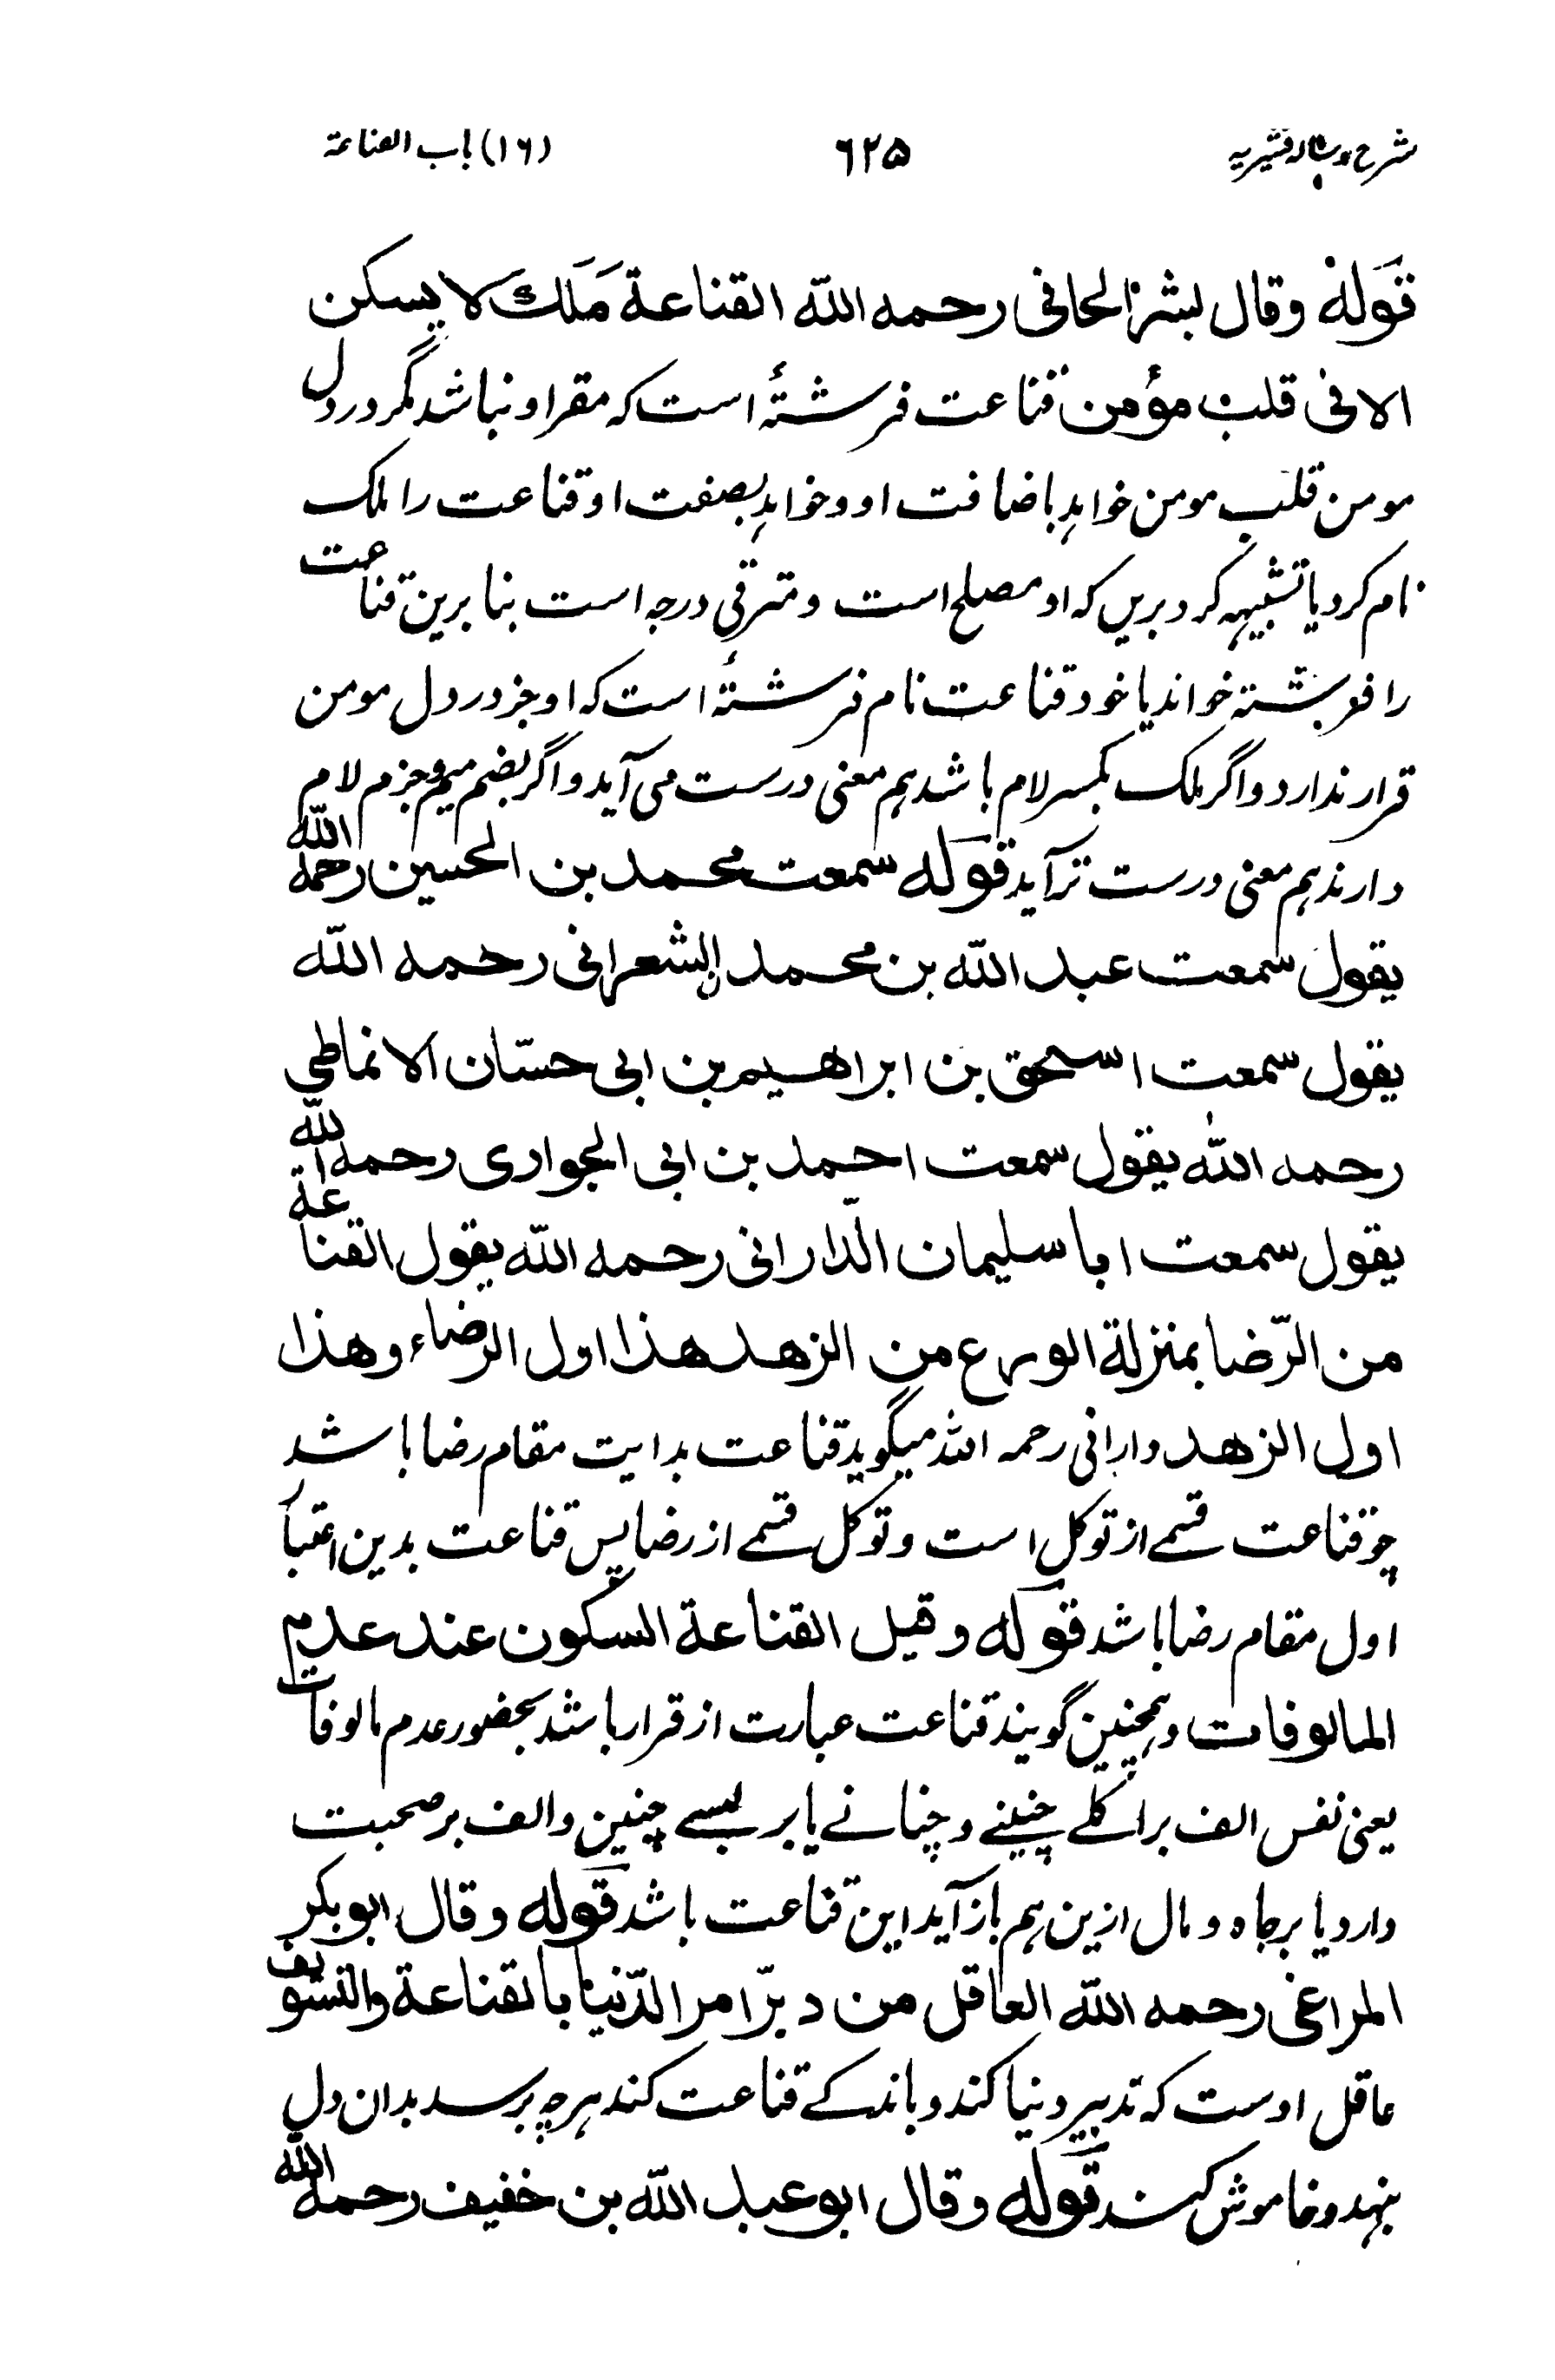 شرح رساله قشیریه ٦٢۵ (١٦) باب القناعة
قوله وقال بشر الحافی رحمه اللّٰه القناعة مَلَك لا یسکن
الا فی قلب مؤمن قناعت فرشتۂ است که مقر او نباشد مگر در دل
مومن قلب مومن خواہِ باضافت او وخواہِ بصفت او قناعت را ملک
نام کرد یا تشبیہہ کرد بریں که او مصلح است و مترقی درجه است بنا برین قناعت
را فرشته خواند یا خود قناعت نام فرشتۂ است که او جز در دل مومن
قرار ندارد واگر ملک بکسر لام باشد ہم معنی درست می آید واگر بضم میم وجزم لام
دارند ہم معنی درست تر آید قوله سمعت محمد بن الحسین رحمه اللّٰه
یقول سمعت عبد اللّٰه بن محمد الشعرانی رحمه اللّٰه
یقول سمعت اسحٰق بن ابراهیم بن ابی حسّان الانماطی
رحمه اللّٰه یقول سمعت احمد بن ابی الحواری رحمه اللّٰه
یقول سمعت ابا سلیمان الدّارانی رحمه اللّٰه یقول القناعة
من الرّضا بمنزلة الورع من الزهد هذا اول الرضاء وهذا
اول الزهد دارانی رحمه اللّٰه میگوید قناعت بدایت مقام رضا باشد
چو قناعت قسمے از توکل است وتوکل قسمے از رضا پس قناعت بدین اعتبار
اول مقام رضا باشد قوله وقیل القناعة السکون عند عدم
المالوفات وہمچنین گویند قناعت عبارت از قرار باشد بحضور عدم مالوفات
یعنی نفس الف بر اکلے چنینے و چنانے یا بر لبسے چنین والف بر صحبت
دارد یا بر جاه و مال ازین ہم باز آید این قناعت باشد قوله وقال ابوبکر
المراغی رحمه اللّٰه العاقل من دبّر امر الدّنیا بالقناعة والتسویف
عاقل اوست که تدبیر دنیا کند و باندکے قناعت کند ہرچه برسد بدان دل
بنہد و خاموش کند قوله وقال ابو عبد اللّٰه بن خفیف رحمه اللّٰه